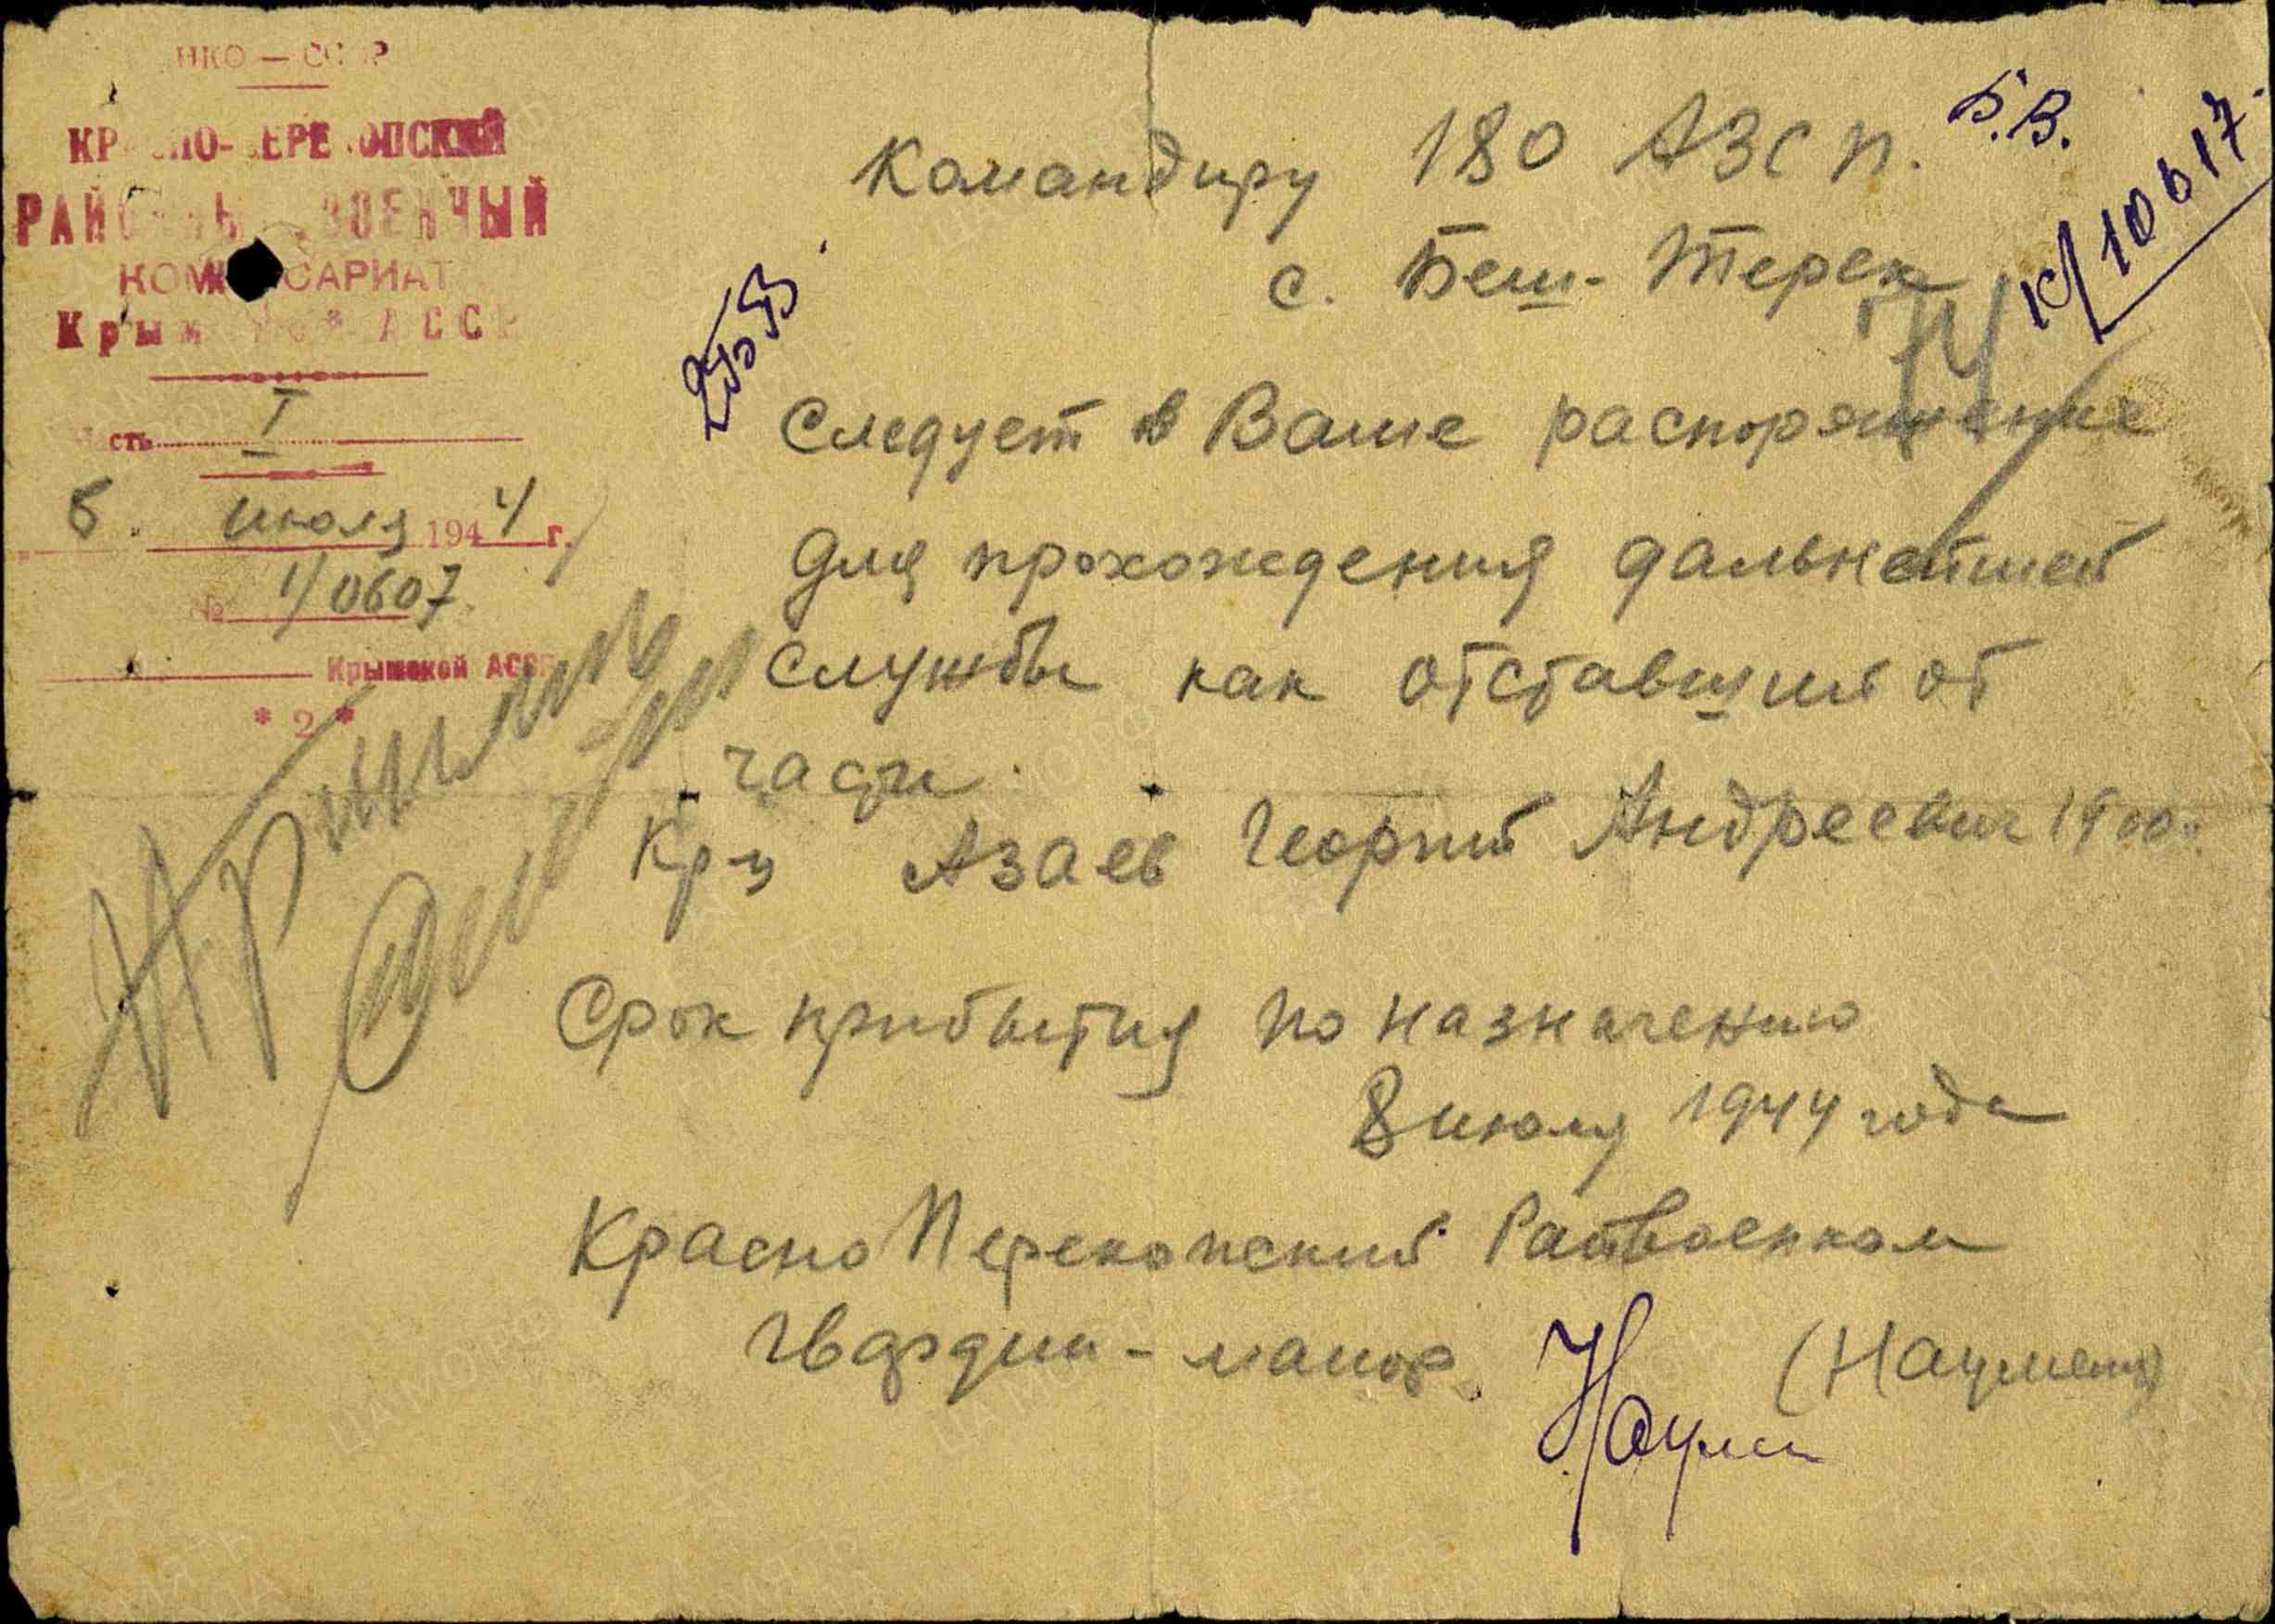 НКО — СССР
КРАСНО-ПЕРЕКОПСКИЙ
РАЙОННЫЙ ВОЕННЫЙ
КОМИССАРИАТ
Крымской АССР
Часть I
6. июля 1944 г.
№ 1/0607
Крымской АССР
* 2 *
Б.В.
10617
Командиру 180 АЗСП.
с. Беш-Терек
Следует в Ваше распоряжение
для прохождения дальнейшей
службы как отставший от
части.
Кр-ц Азаев Георгий Андреевич 1900г.
Срок прибытия по назначению
8 июля 1944 года
Красно Перекопский Райвоенком
гвардии-майор